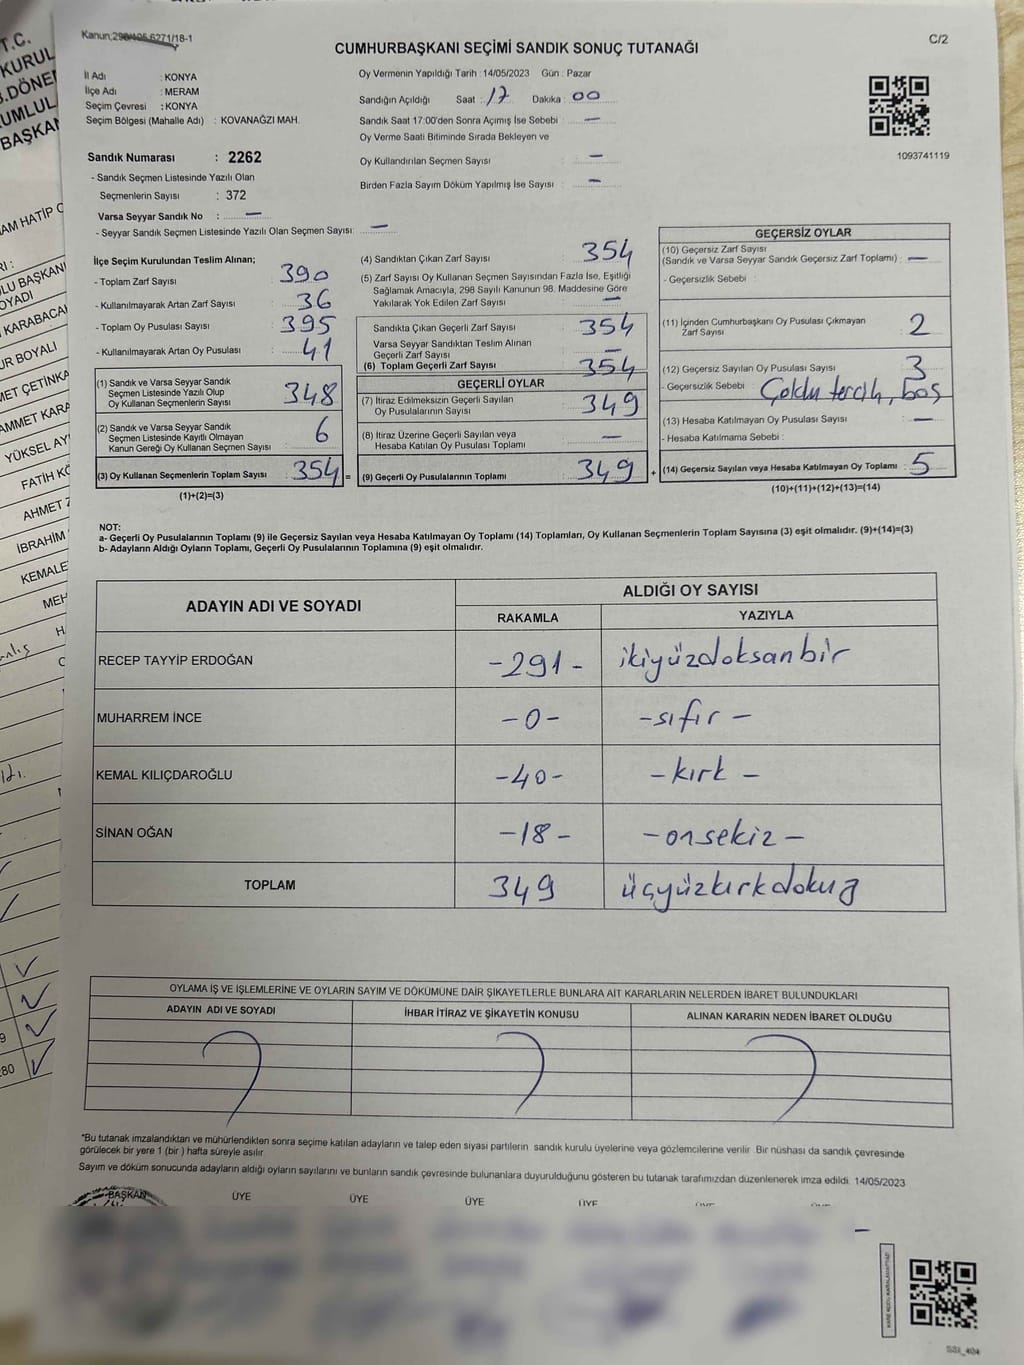 Kanun;298/405.6271/18-1
C/2
CUMHURBAŞKANI SEÇİMİ SANDIK SONUÇ TUTANAĞI
İl Adı : KONYA
İlçe Adı : MERAM
Seçim Çevresi : KONYA
Seçim Bölgesi (Mahalle Adı) : KOVANAĞZI MAH.
Sandık Numarası : 2262
- Sandık Seçmen Listesinde Yazılı Olan
Seçmenlerin Sayısı : 372
Varsa Seyyar Sandık No : —
- Seyyar Sandık Seçmen Listesinde Yazılı Olan Seçmen Sayısı: —
Oy Vermenin Yapıldığı Tarih : 14/05/2023 Gün : Pazar
Sandığın Açıldığı Saat : 17 Dakika : 00
Sandık Saat 17:00'den Sonra Açımış İse Sebebi : —
Oy Verme Saati Bitiminde Sırada Bekleyen ve
Oy Kullandırılan Seçmen Sayısı : —
Birden Fazla Sayım Döküm Yapılmış İse Sayısı : —
1093741119
İlçe Seçim Kurulundan Teslim Alınan;
- Toplam Zarf Sayısı : 390
- Kullanılmayarak Artan Zarf Sayısı : 36
- Toplam Oy Pusulası Sayısı : 395
- Kullanılmayarak Artan Oy Pusulası : 41
(1) Sandık ve Varsa Seyyar Sandık
Seçmen Listesinde Yazılı Olup
Oy Kullanan Seçmenlerin Sayısı : 348
(2) Sandık ve Varsa Seyyar Sandık
Seçmen Listesinde Kayıtlı Olmayan
Kanun Gereği Oy Kullanan Seçmen Sayısı : 6
(3) Oy Kullanan Seçmenlerin Toplam Sayısı : 354 =
(1)+(2)=(3)
(4) Sandıktan Çıkan Zarf Sayısı : 354
(5) Zarf Sayısı Oy Kullanan Seçmen Sayısından Fazla İse, Eşitliği
Sağlamak Amacıyla, 298 Sayılı Kanunun 98. Maddesine Göre
Yakılarak Yok Edilen Zarf Sayısı : —
Sandıkta Çıkan Geçerli Zarf Sayısı : 354
Varsa Seyyar Sandıktan Teslim Alınan
Geçerli Zarf Sayısı : —
(6) Toplam Geçerli Zarf Sayısı : 354
GEÇERLİ OYLAR
(7) İtiraz Edilmeksizin Geçerli Sayılan
Oy Pusulalarının Sayısı : 349
(8) İtiraz Üzerine Geçerli Sayılan veya
Hesaba Katılan Oy Pusulası Toplamı : —
(9) Geçerli Oy Pusulalarının Toplamı : 349 +
GEÇERSİZ OYLAR
(10) Geçersiz Zarf Sayısı
(Sandık ve Varsa Seyyar Sandık Geçersiz Zarf Toplamı) : —
- Geçersizlik Sebebi :
(11) İçinden Cumhurbaşkanı Oy Pusulası Çıkmayan
Zarf Sayısı : 2
(12) Geçersiz Sayılan Oy Pusulası Sayısı : 3
- Geçersizlik Sebebi : Çoklu tercih, boş
(13) Hesaba Katılmayan Oy Pusulası Sayısı : —
- Hesaba Katılmama Sebebi :
(14) Geçersiz Sayılan veya Hesaba Katılmayan Oy Toplamı : 5
(10)+(11)+(12)+(13)=(14)
NOT:
a- Geçerli Oy Pusulalarının Toplamı (9) ile Geçersiz Sayılan veya Hesaba Katılmayan Oy Toplamı (14) Toplamları, Oy Kullanan Seçmenlerin Toplam Sayısına (3) eşit olmalıdır. (9)+(14)=(3)
b- Adayların Aldığı Oyların Toplamı, Geçerli Oy Pusulalarının Toplamına (9) eşit olmalıdır.
ADAYIN ADI VE SOYADI
ALDIĞI OY SAYISI
RAKAMLA YAZIYLA
RECEP TAYYİP ERDOĞAN -291- ikiyüzdoksanbir
MUHARREM İNCE -0- -sıfır-
KEMAL KILIÇDAROĞLU -40- -kırk-
SİNAN OĞAN -18- -onsekiz-
TOPLAM 349 üçyüzkırkdokuz
OYLAMA İŞ VE İŞLEMLERİNE VE OYLARIN SAYIM VE DÖKÜMÜNE DAİR ŞİKAYETLERLE BUNLARA AİT KARARLARIN NELERDEN İBARET BULUNDUKLARI
ADAYIN ADI VE SOYADI İHBAR İTİRAZ VE ŞİKAYETİN KONUSU ALINAN KARARIN NEDEN İBARET OLDUĞU
*Bu tutanak imzalandıktan ve mühürlendikten sonra seçime katılan adayların ve talep eden siyasi partilerin sandık kurulu üyelerine veya gözlemcilerine verilir. Bir nüshası da sandık çevresinde
görülecek bir yere 1 (bir ) hafta süreyle asılır.
Sayım ve döküm sonucunda adayların aldığı oyların sayılarını ve bunların sandık çevresinde bulunanlara duyurulduğunu gösteren bu tutanak tarafımızdan düzenlenerek imza edildi. 14/05/2023
BAŞKAN ÜYE ÜYE ÜYE ÜYE
T.C.
KURUL
.DÖNE
BAŞKAN
AM HATİP
LU BAŞKANI
OYADI
KARABACA
UR BOYALI
MET ÇETİNKA
AMMET KARA
YÜKSEL AY
FATİH KÖ
AHMET
İBRAHİM
KEMALE
MEH